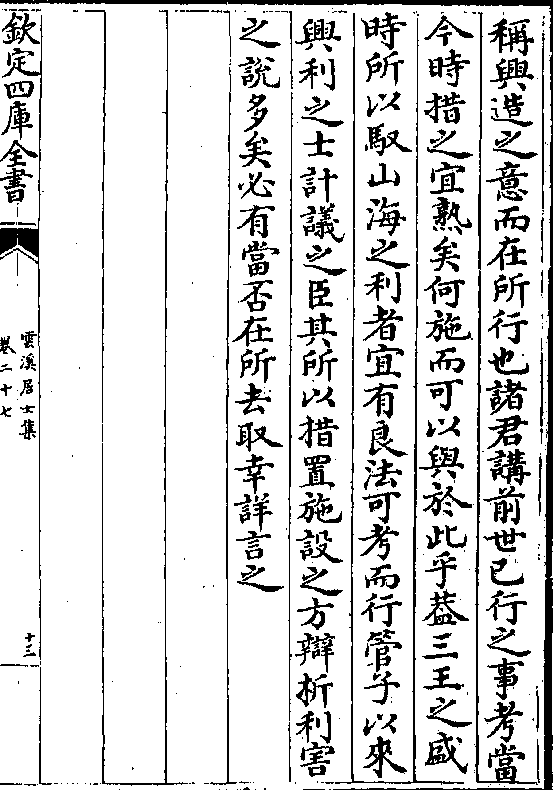 稱興造之意而在所行也諸君講前世已行之事考當
今時措之宜熟矣何施而可以與於此乎葢三王之盛
時所以馭山海之利者宜有良法可考而行管子以來
興利之士計議之臣其所以措置施設之方辯析利害
之說多矣必有當否在所去取幸詳言之
欽定四庫全書
雲溪居士集
卷二十七
十三